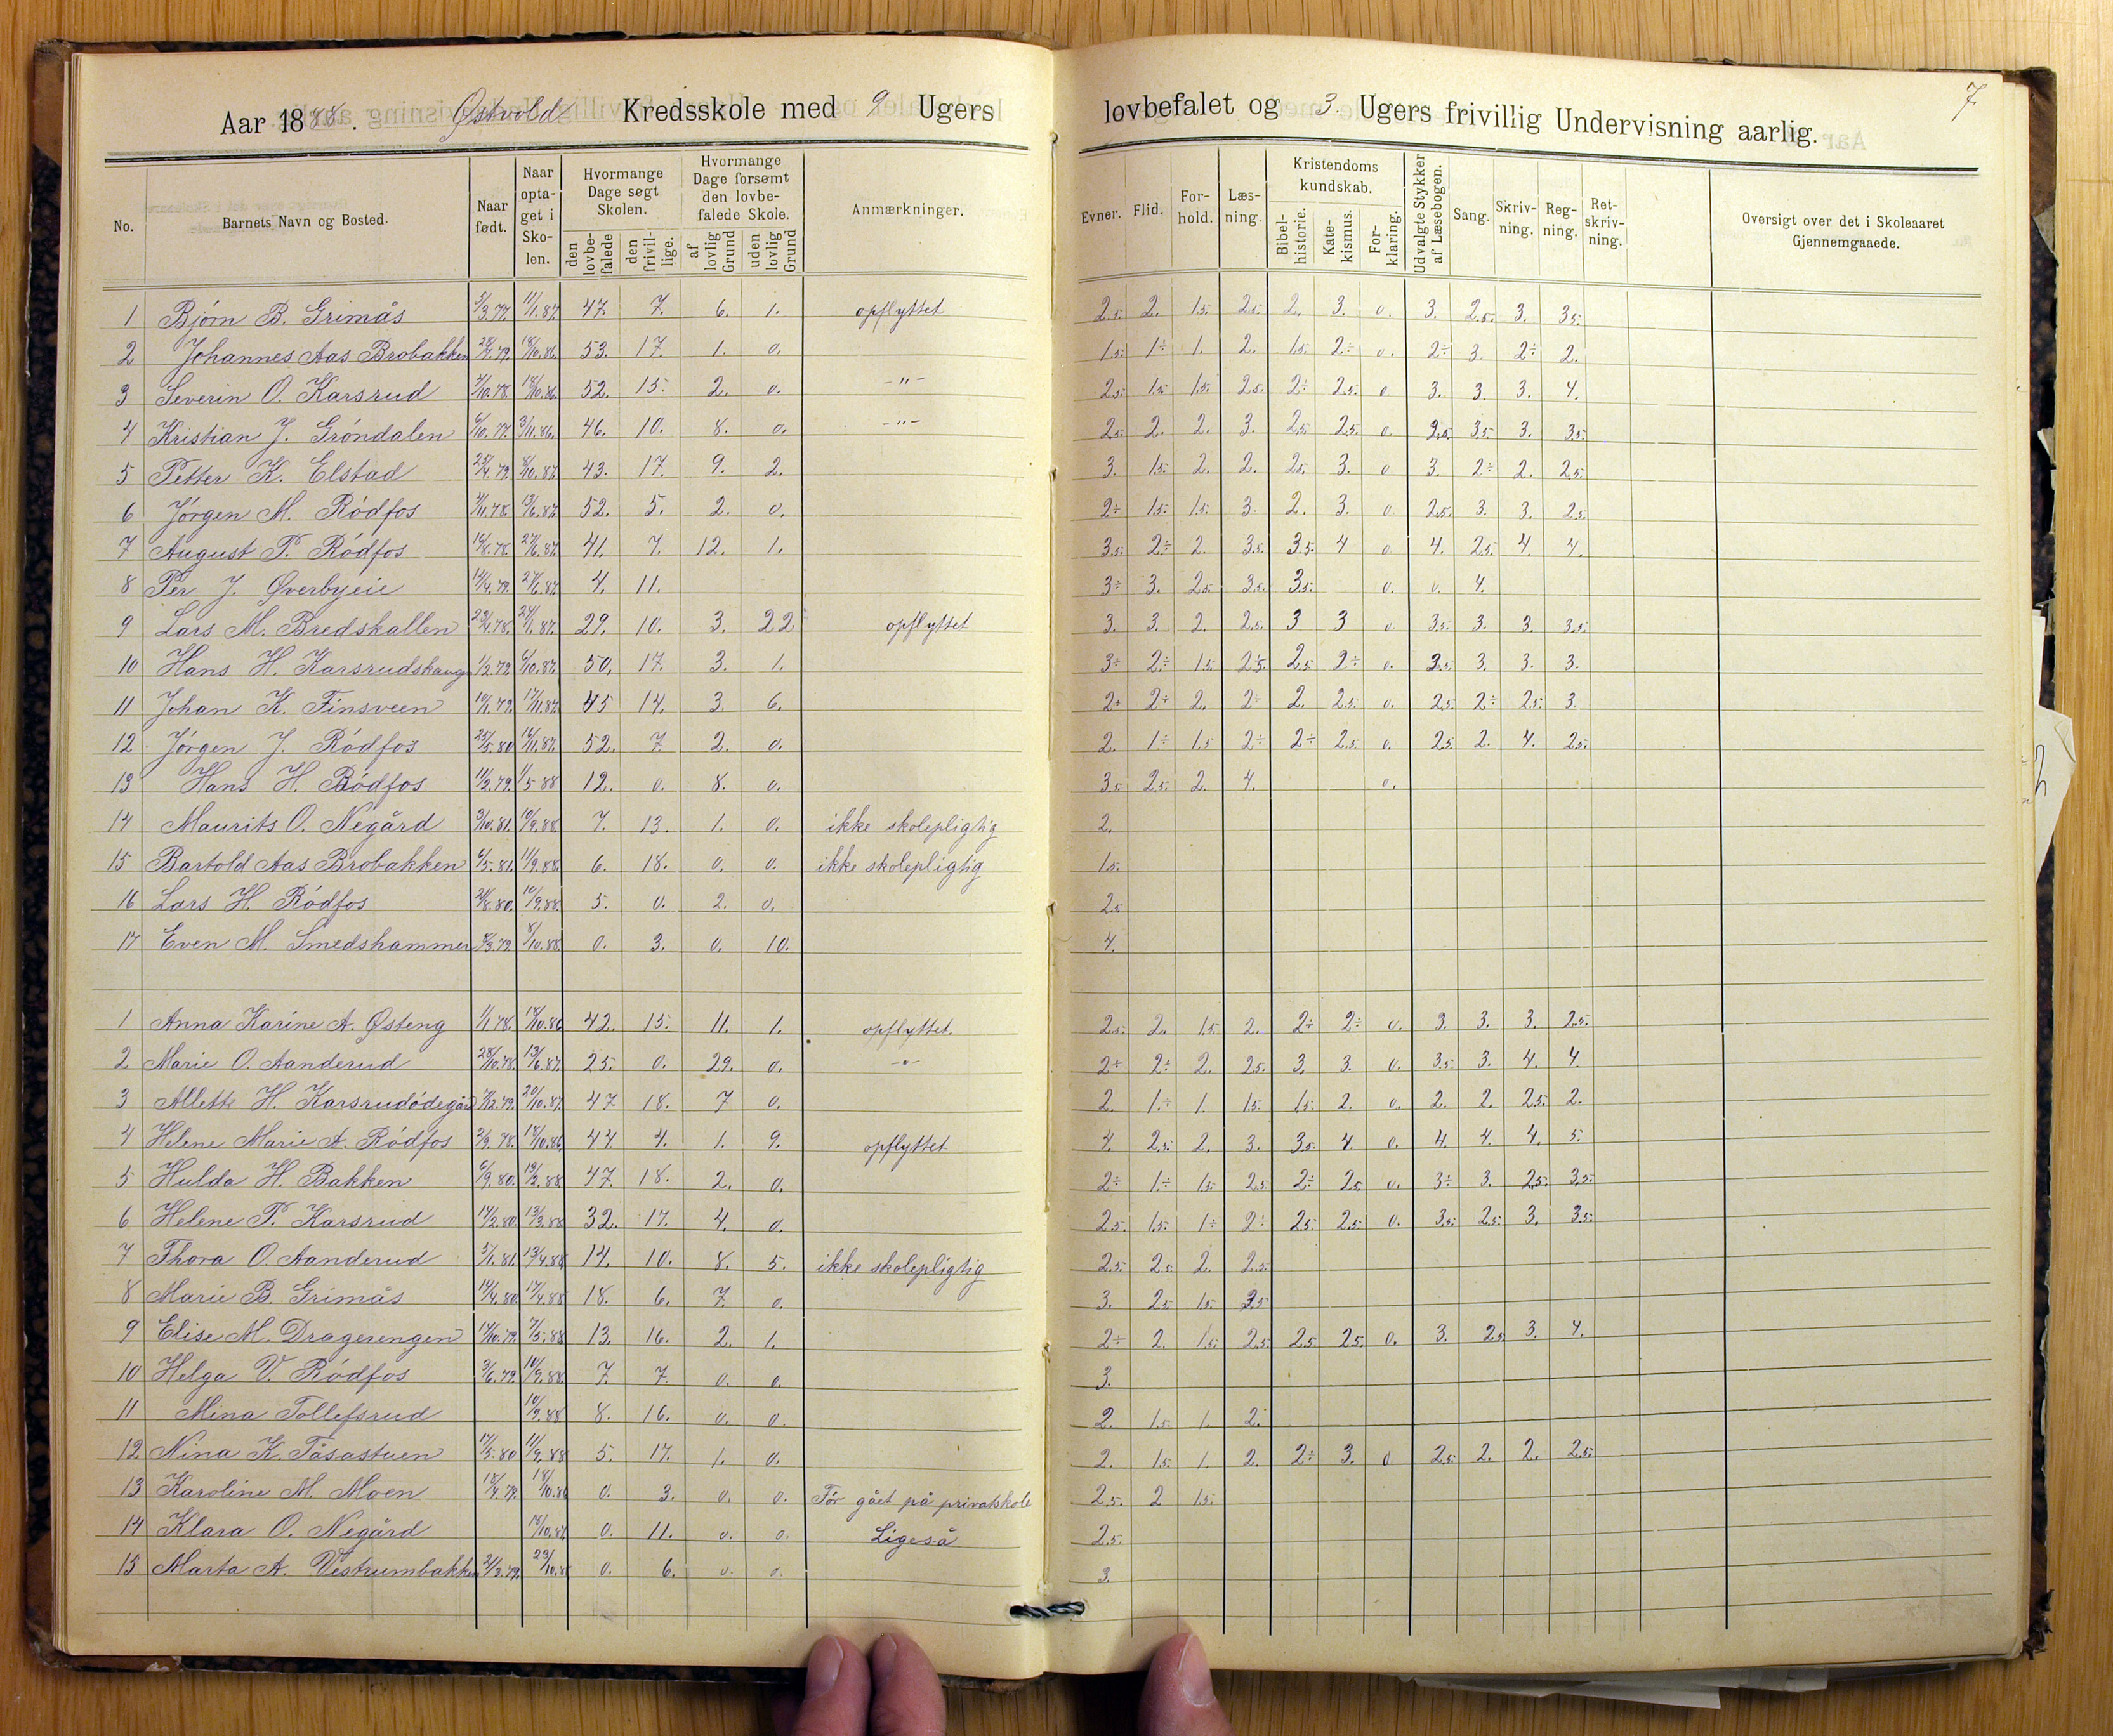 Aar 1888. Østvold Kredsskole med 9 Ugers lovbefalet og 3 Ugers frivillig Undervisning aarlig. 7
No. Barnets Navn og Bosted. Naar født. Naar optaget i Skolen. Hvormange Dage søgt Skolen. den lovbefalede den frivillige. Hvormange Dage forsømt den lovbefalede Skole. af lovlig Grund uden lovlig Grund Anmærkninger. Evner. Flid. Forhold. Læsning. Kristendomskundskab. Bibelhistorie. Katekismus. Forklaring. Udvalgte Stykker af Læsebogen. Sang. Skrivning. Regning. Retskrivning. Oversigt over det i Skoleaaret Gjennemgaaede.
1 Bjørn B. Grimås 5/3.77. 11/1.87. 47. 7. 6. 1. opflyttet 2.5. 2. 1.5. 2.5. 2. 3. 0. 3. 2.5. 3. 3.5.
2 Johannes Aas Brobakken 18/10.86. 53. 17. 1. 0. 1.5. 1÷ 1. 2. 1.5. 2÷ 0. 2÷ 3. 2÷ 2.
3 Severin O. Karsrud 18/10.86. 52. 15. 2. 0. -"- 2.5. 1.5. 1.5. 2.5. 2÷ 2.5. 0 3. 3. 3. 4.
4 Kristian J. Gröndalen 6/10.77. 3/11.86. 46. 10. 8. 0. -"- 2.5. 2. 2. 3. 2.5. 2.5. 0. 2.5. 3.5. 3. 3.5.
5 Petter K. Elstad 25/4.79. 8/10.87. 43. 17. 9. 2. 3. 1.5. 2. 2. 2.5. 3. 0 3. 2÷ 2. 2.5.
6 Jörgen M. Rödfos 13/6.87. 52. 5. 2. 0. 2÷ 1.5. 1.5. 3. 2. 3. 0. 2.5. 3. 3. 2.5.
7 August P. Rödfos 27/6.87. 41. 7. 12. 1. 3.5. 2÷ 2. 3.5. 3.5. 4 0 4. 2.5. 4. 4.
8 Per J. Øverbyeie 14/4.79. 27/6.87. 4. 11. 3÷ 3. 2.5. 3.5. 3.5. 0. 0. 4.
9 Lars M. Bredskallen 24/1.87. 29. 10. 3. 22 opflyttet 3. 3. 2. 2.5. 3 3 0 3.5. 3. 3. 3.5.
10 Hans H. Karsrudshaug 1/2.79. 6/10.87. 50. 17. 3. 1. 3÷ 2÷ 1.5. 2.5. 2.5. 2÷ 0. 3.5. 3. 3. 3.
11 Johan K. Finsveen 10/1.79. 17/11.87. 45 14. 3. 6. 2÷ 2÷ 2. 2÷ 2. 2.5. 0. 2.5. 2÷ 2.5. 3.
12. Jörgen J. Rödfos 25/5.80. 16/11.87. 52. 7. 2. 0. 2. 1÷ 1.5 2÷ 2÷ 2.5. 0. 2.5. 2. 4. 2.5.
13 Hans H. Rödfos 11/2.79. 1/5 88 12. 0. 8. 0. 3.5 2.5. 2. 4. 0.
14 Maurits O. Negård 3/10.81. 10/9.88. 7. 13. 1. 0. ikke skolepligtig 2.
15 Bartold Aas Brobakken 6/5.81. 11/9.88. 6. 18. 0. 0. ikke skolepligtig 1.5.
16 Lars H. Rödfos 10/9.88. 5. 0. 2. 0. 2.5
17 Even M. Smedshammer 8/10.88. 0. 3. 0. 10. 4.
1 Anna Karine A. Østeng 1/1.78. 18/10.86 42. 15. 11. 1. opflyttet. 2.5. 2. 1.5. 2. 2÷ 2÷ 0. 3. 3. 3. 2.5.
2 Marie O. Aanderud 28/10.78. 13/6.87. 25. 0. 29. 0. -"- 2÷ 2÷ 2. 2.5. 3. 3. 0. 3.5. 3. 4. 4.
3 Allette H. Karsrudödegård 7/12.79. 20/10.87. 47 18. 7 0. 2. 1.÷ 1. 1.5. 1.5. 2. 0. 2. 2. 2.5. 2.
4 Helene Marie A. Rödfos 2/9.78. 18/10.86. 44. 4. 1. 9. opflyttet 4. 2.5. 2. 3. 3.5 4. 0. 4. 4. 4. 5.
5 Hulda H. Bakken 6/9.80. 19/2.88. 47. 18. 2. 0. 2÷ 1.÷ 1.5. 2.5 2÷ 2.5 0. 3÷ 3. 2.5. 3.5.
6 Helene P. Karsrud 14/2.80. 13/3.88. 32. 17. 4. 0. 2.5. 1.5. 1÷ 2÷ 2.5. 2.5. 0. 3.5. 2.5. 3. 3.5.
7 Thora O. Aanderud 5/1.81. 13/4.88 14. 10. 8. 5. ikke skolepligtig 2.5. 2.5 2. 2.5.
8 Marie B. Grimås 14/4.80. 17/4.88 18. 6. 7. 0. 3. 2.5. 1.5. 3.5
9 Elise M. Dragerengen 14/10.79. 7/5.88 13. 16. 2. 1. 2÷ 2. 1.5. 2.5. 2.5 2.5. 0. 3. 2.5 3. 4.
10 Helga V. Rödfos 3/6.79. 10/9.88. 7. 7. 0. 0. 3.
11 Mina Tollefsrud 10/9.88 8. 16. 0. 0. 2. 1.5. 1. 2.
12 Nina K. Tåsastuen 17/5.80 11/9.88 5. 17. 1. 0. 2. 1.5. 1. 2. 2÷ 3. 0 2.5. 2. 2. 2.5.
13 Karoline M. Moen 18/4.79. 18/10.86 0. 3. 0. 0. För gået på privatskole 2.5. 2 1.5.
14 Klara O. Negård 18/10.87. 0. 11. 0. 0. Ligeså 2.5.
15 Marta A. Vestrumbakken 0. 6. 0. 0. 3.